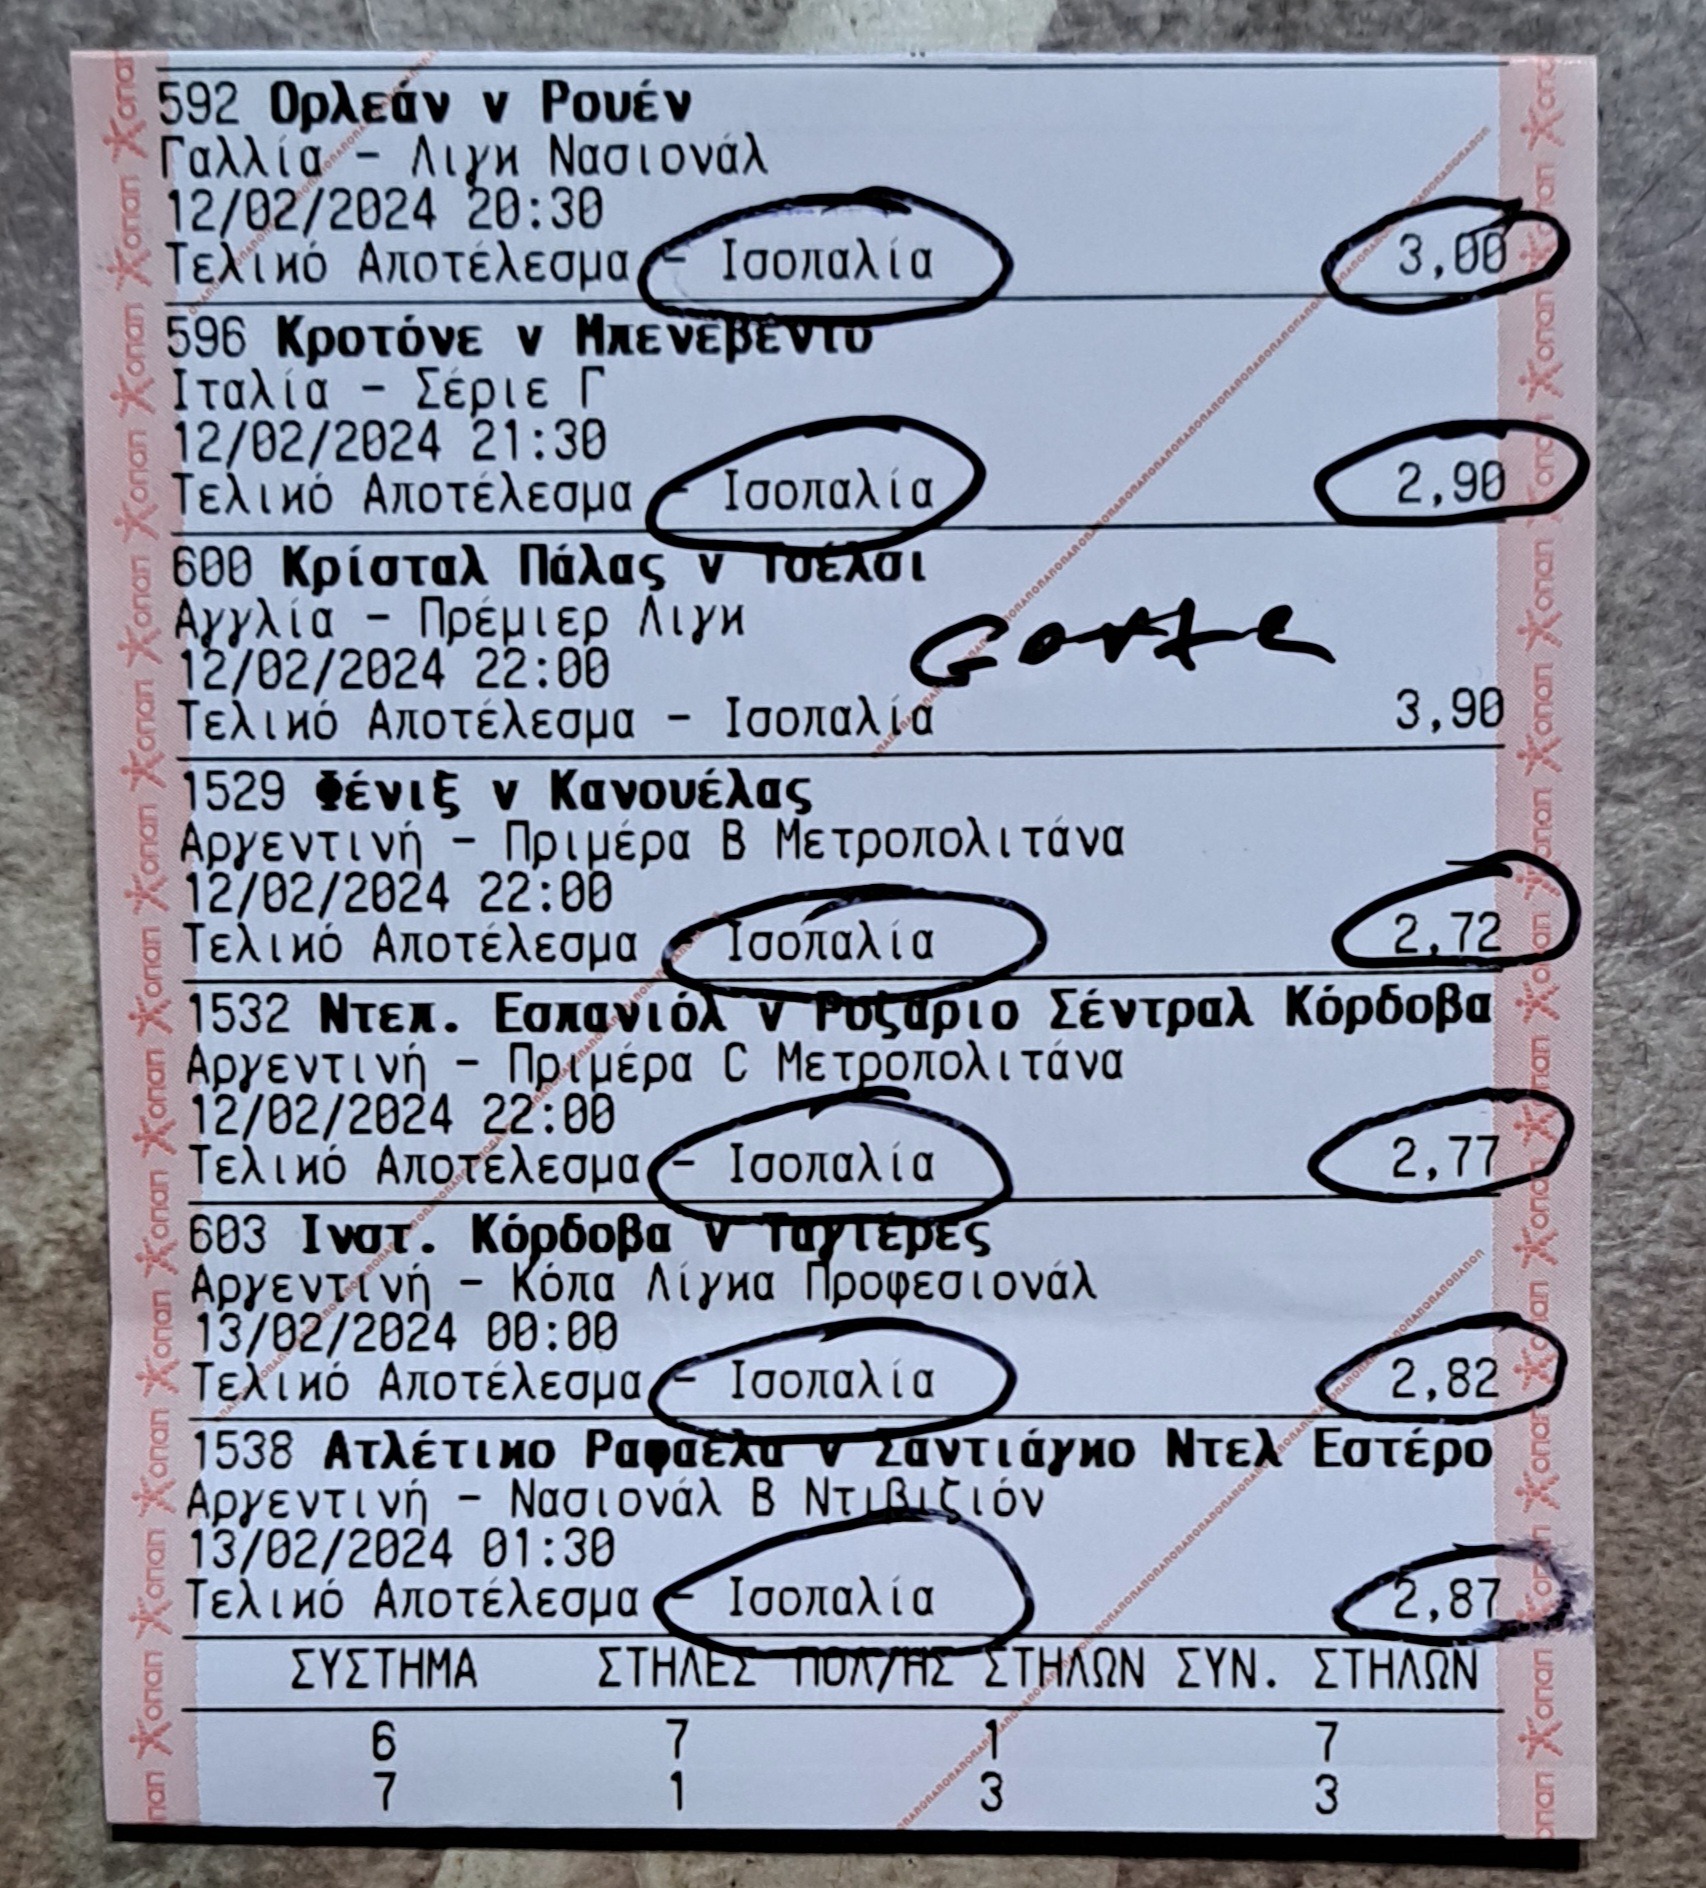 592 Ορλεάν v Ρουέν
Γαλλία - Λιγκ Νασιονάλ
12/02/2024 20:30
Τελικό Αποτέλεσμα - Ισοπαλία 3,00
596 Κροτόνε v Μπενεβέντο
Ιταλία - Σέριε Γ
12/02/2024 21:30
Τελικό Αποτέλεσμα - Ισοπαλία 2,90
600 Κρίσταλ Πάλας v Τσέλσι
Αγγλία - Πρέμιερ Λιγκ
12/02/2024 22:00
Τελικό Αποτέλεσμα - Ισοπαλία 3,90
1529 Φένιξ v Κανουέλας
Αργεντινή - Πριμέρα Β Μετροπολιτάνα
12/02/2024 22:00
Τελικό Αποτέλεσμα Ισοπαλία 2,72
1532 Ντεπ. Εσπανιόλ v Ροζάριο Σέντραλ Κόρδοβα
Αργεντινή - Πριμέρα C Μετροπολιτάνα
12/02/2024 22:00
Τελικό Αποτέλεσμα - Ισοπαλία 2,77
603 Ινστ. Κόρδοβα v Ταγιέρες
Αργεντινή - Κόπα Λίγκα Προφεσιονάλ
13/02/2024 00:00
Τελικό Αποτέλεσμα - Ισοπαλία 2,82
1538 Ατλέτικο Ραφαέλα v Σαντιάγκο Ντελ Εστέρο
Αργεντινή - Νασιονάλ Β Ντιβιζιόν
13/02/2024 01:30
Τελικό Αποτέλεσμα - Ισοπαλία 2,87
ΣΥΣΤΗΜΑ ΣΤΗΛΕΣ ΠΟΛ/ΗΣ ΣΤΗΛΩΝ ΣΥΝ. ΣΤΗΛΩΝ
6 7 1 7
7 1 3 3